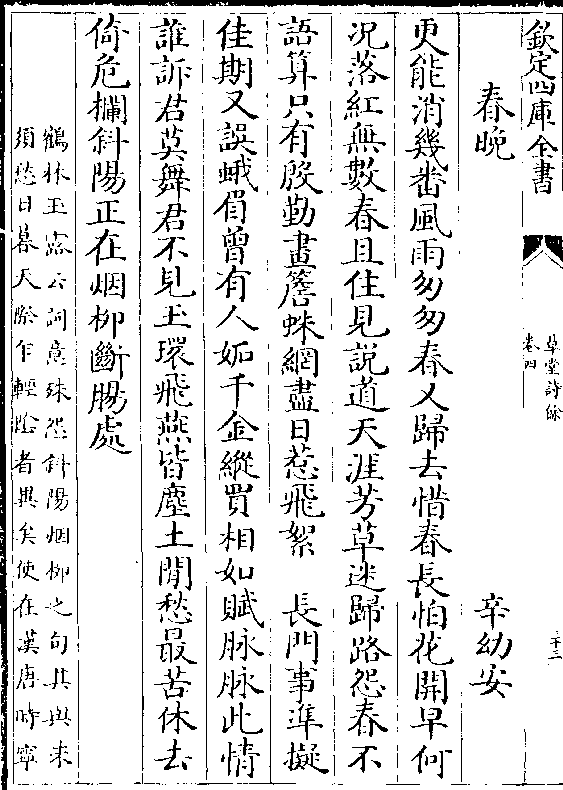 欽定四庫全書
草堂詩餘
卷四
三十三
春晚　辛幼安
更能消幾畨風雨匆匆春又歸去惜春長怕花開早何
况落紅無數春且住見説道天涯芳草迷歸路怨春不
語算只有殷勤畫簷蛛網盡日惹飛絮　長門事準擬
佳期又誤蛾眉曾有人妬千金縱買相如賦脉脉此情
誰訴君莫舞君不見玉環飛燕皆塵土閒愁最苦休去
倚危欄斜陽正在烟柳斷腸處
鶴林玉露云詞意殊怨斜陽烟柳之句其與未
須愁日暮天際乍輕陰者異矣使在漢唐時寧